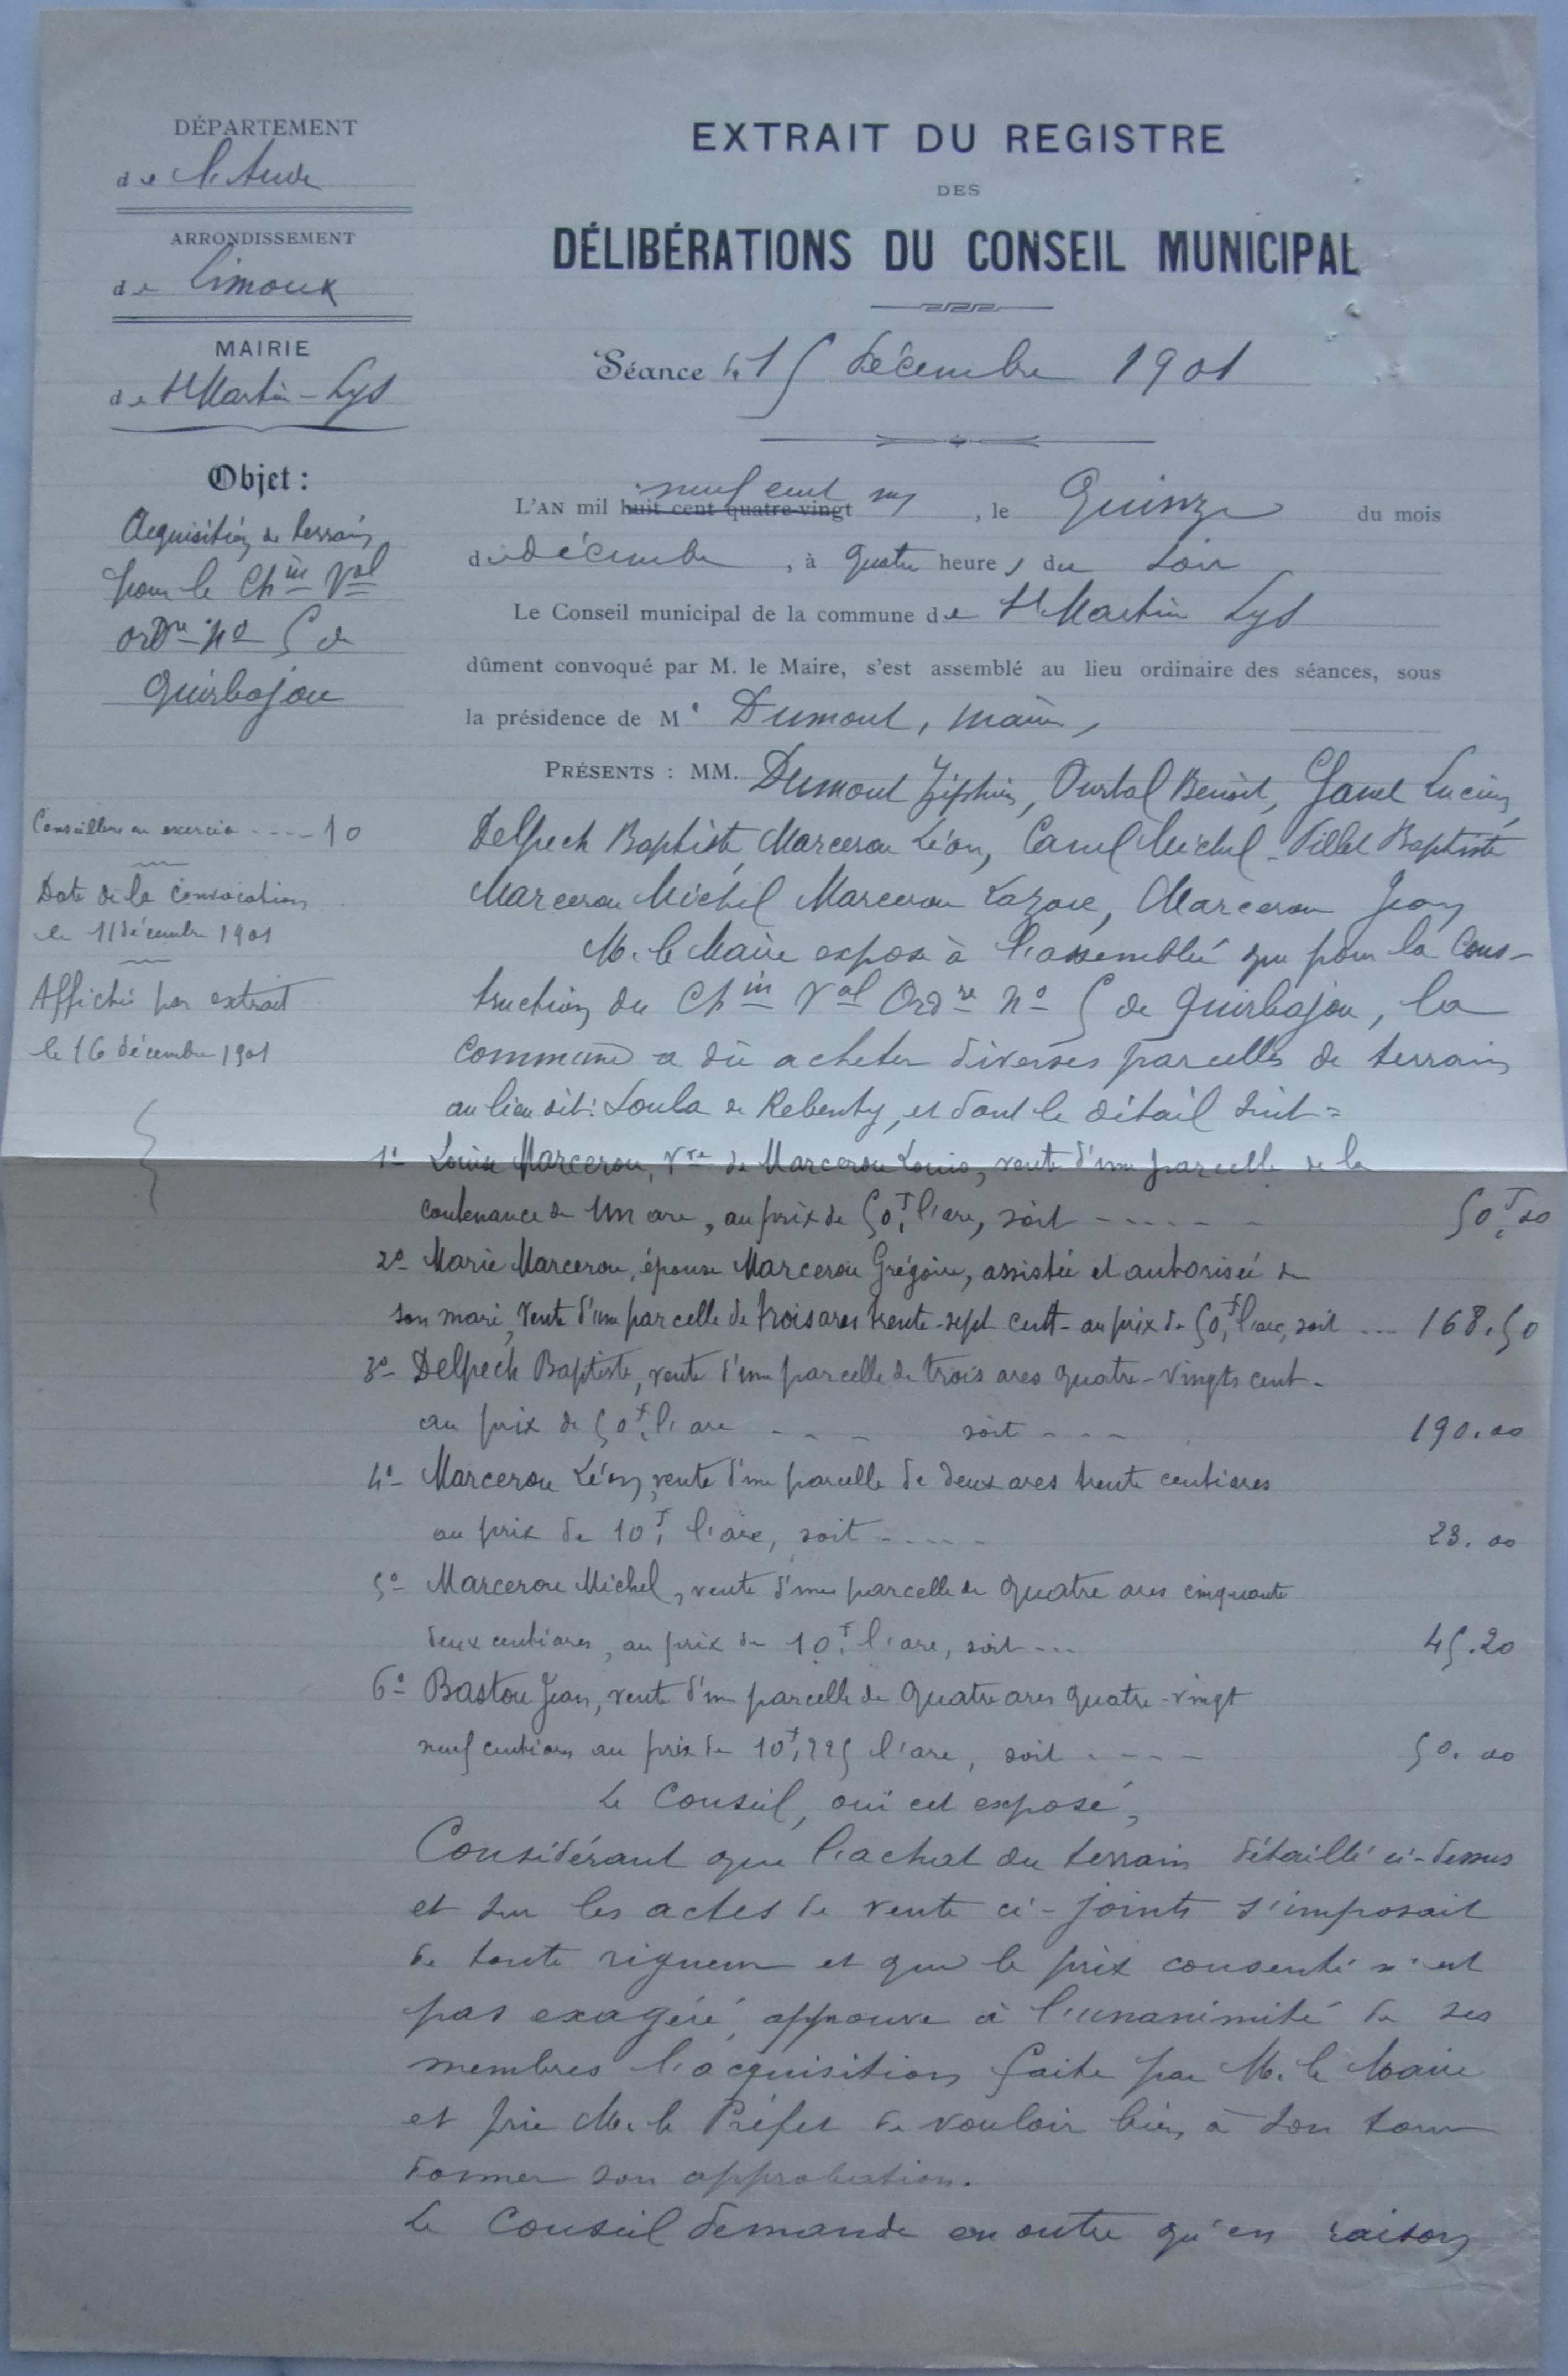 DÉPARTEMENT
de l'Aude
ARRONDISSEMENT
de Limoux
MAIRIE
de St Martin-Lys
Objet :
Acquisition de terrain
pour le Chin Val
ordre No 5 de
Quirbajou
Conseillers en exercice ---- 10
Date de la convocation
le 11 décembre 1901
Affiché par extrait
le 16 décembre 1901
EXTRAIT DU REGISTRE
DES
DÉLIBÉRATIONS DU CONSEIL MUNICIPAL
Séance du 15 décembre 1901
neuf cent un
L'AN mil huit cent quatre-vingt , le Quinze du mois
de décembre , à quatre heures du soir
Le Conseil municipal de la commune de St Martin Lys
dûment convoqué par M. le Maire, s'est assemblé au lieu ordinaire des séances, sous
la présidence de Mr Dumont, maire,
PRÉSENTS : MM. Dumont Zéphirin, Benoit, Lucien,
Delpech Baptiste, Marcerou Léon, Canel Michel - Pillet Baptiste
Marcerou Michel Marcerou Lazare, Marcerou Jean
M. le Maire expose à l'assemblée que pour la cons-
truction du Chin Val Ordre No 5 de Quirbajou, la
commune a dû acheter diverses parcelles de terrain
au lieu dit: Soula de Rebenty, et dont le détail suit =
1o Louise Marcerou, Vve de Marcerou Louis, vente d'une parcelle de la
contenance de un are, au prix de 50f l'are, soit ------ 50f,00
2o Marie Marcerou, épouse Marcerou Grégoire, assistée et autorisée de
son mari, vente d'une parcelle de trois ares trente-sept cent- au prix de 50f l'are, soit --- 168.50
3o Delpech Baptiste, vente d'une parcelle de trois ares quatre-vingts cent-
au prix de 50f l'are --- soit --- 190.00
4o Marcerou Léon, vente d'une parcelle de deux ares trente centiares
au prix de 10f, l'are, soit ----- 23.00
5o Marcerou Michel, vente d'une parcelle de quatre ares cinquante
deux centiares, au prix de 10f l'are, soit --- 45.20
6o Bastou Jean, vente d'une parcelle de quatre ares quatre-vingt
neuf centiares au prix de 10f,225 l'are, soit ---- 50.00
Le Conseil, ouï cet exposé,
Considérant que l'achat du terrain détaillé ci-dessus
et sur les actes de vente ci-joints s'imposait
de toute rigueur et que le prix consenti n'est
pas exagéré, approuve à l'unanimité de ses
membres l'acquisition faite par M. le Maire
et prie M. le Préfet de vouloir bien à son tour
donner son approbation.
Le Conseil demande en outre qu'en raison